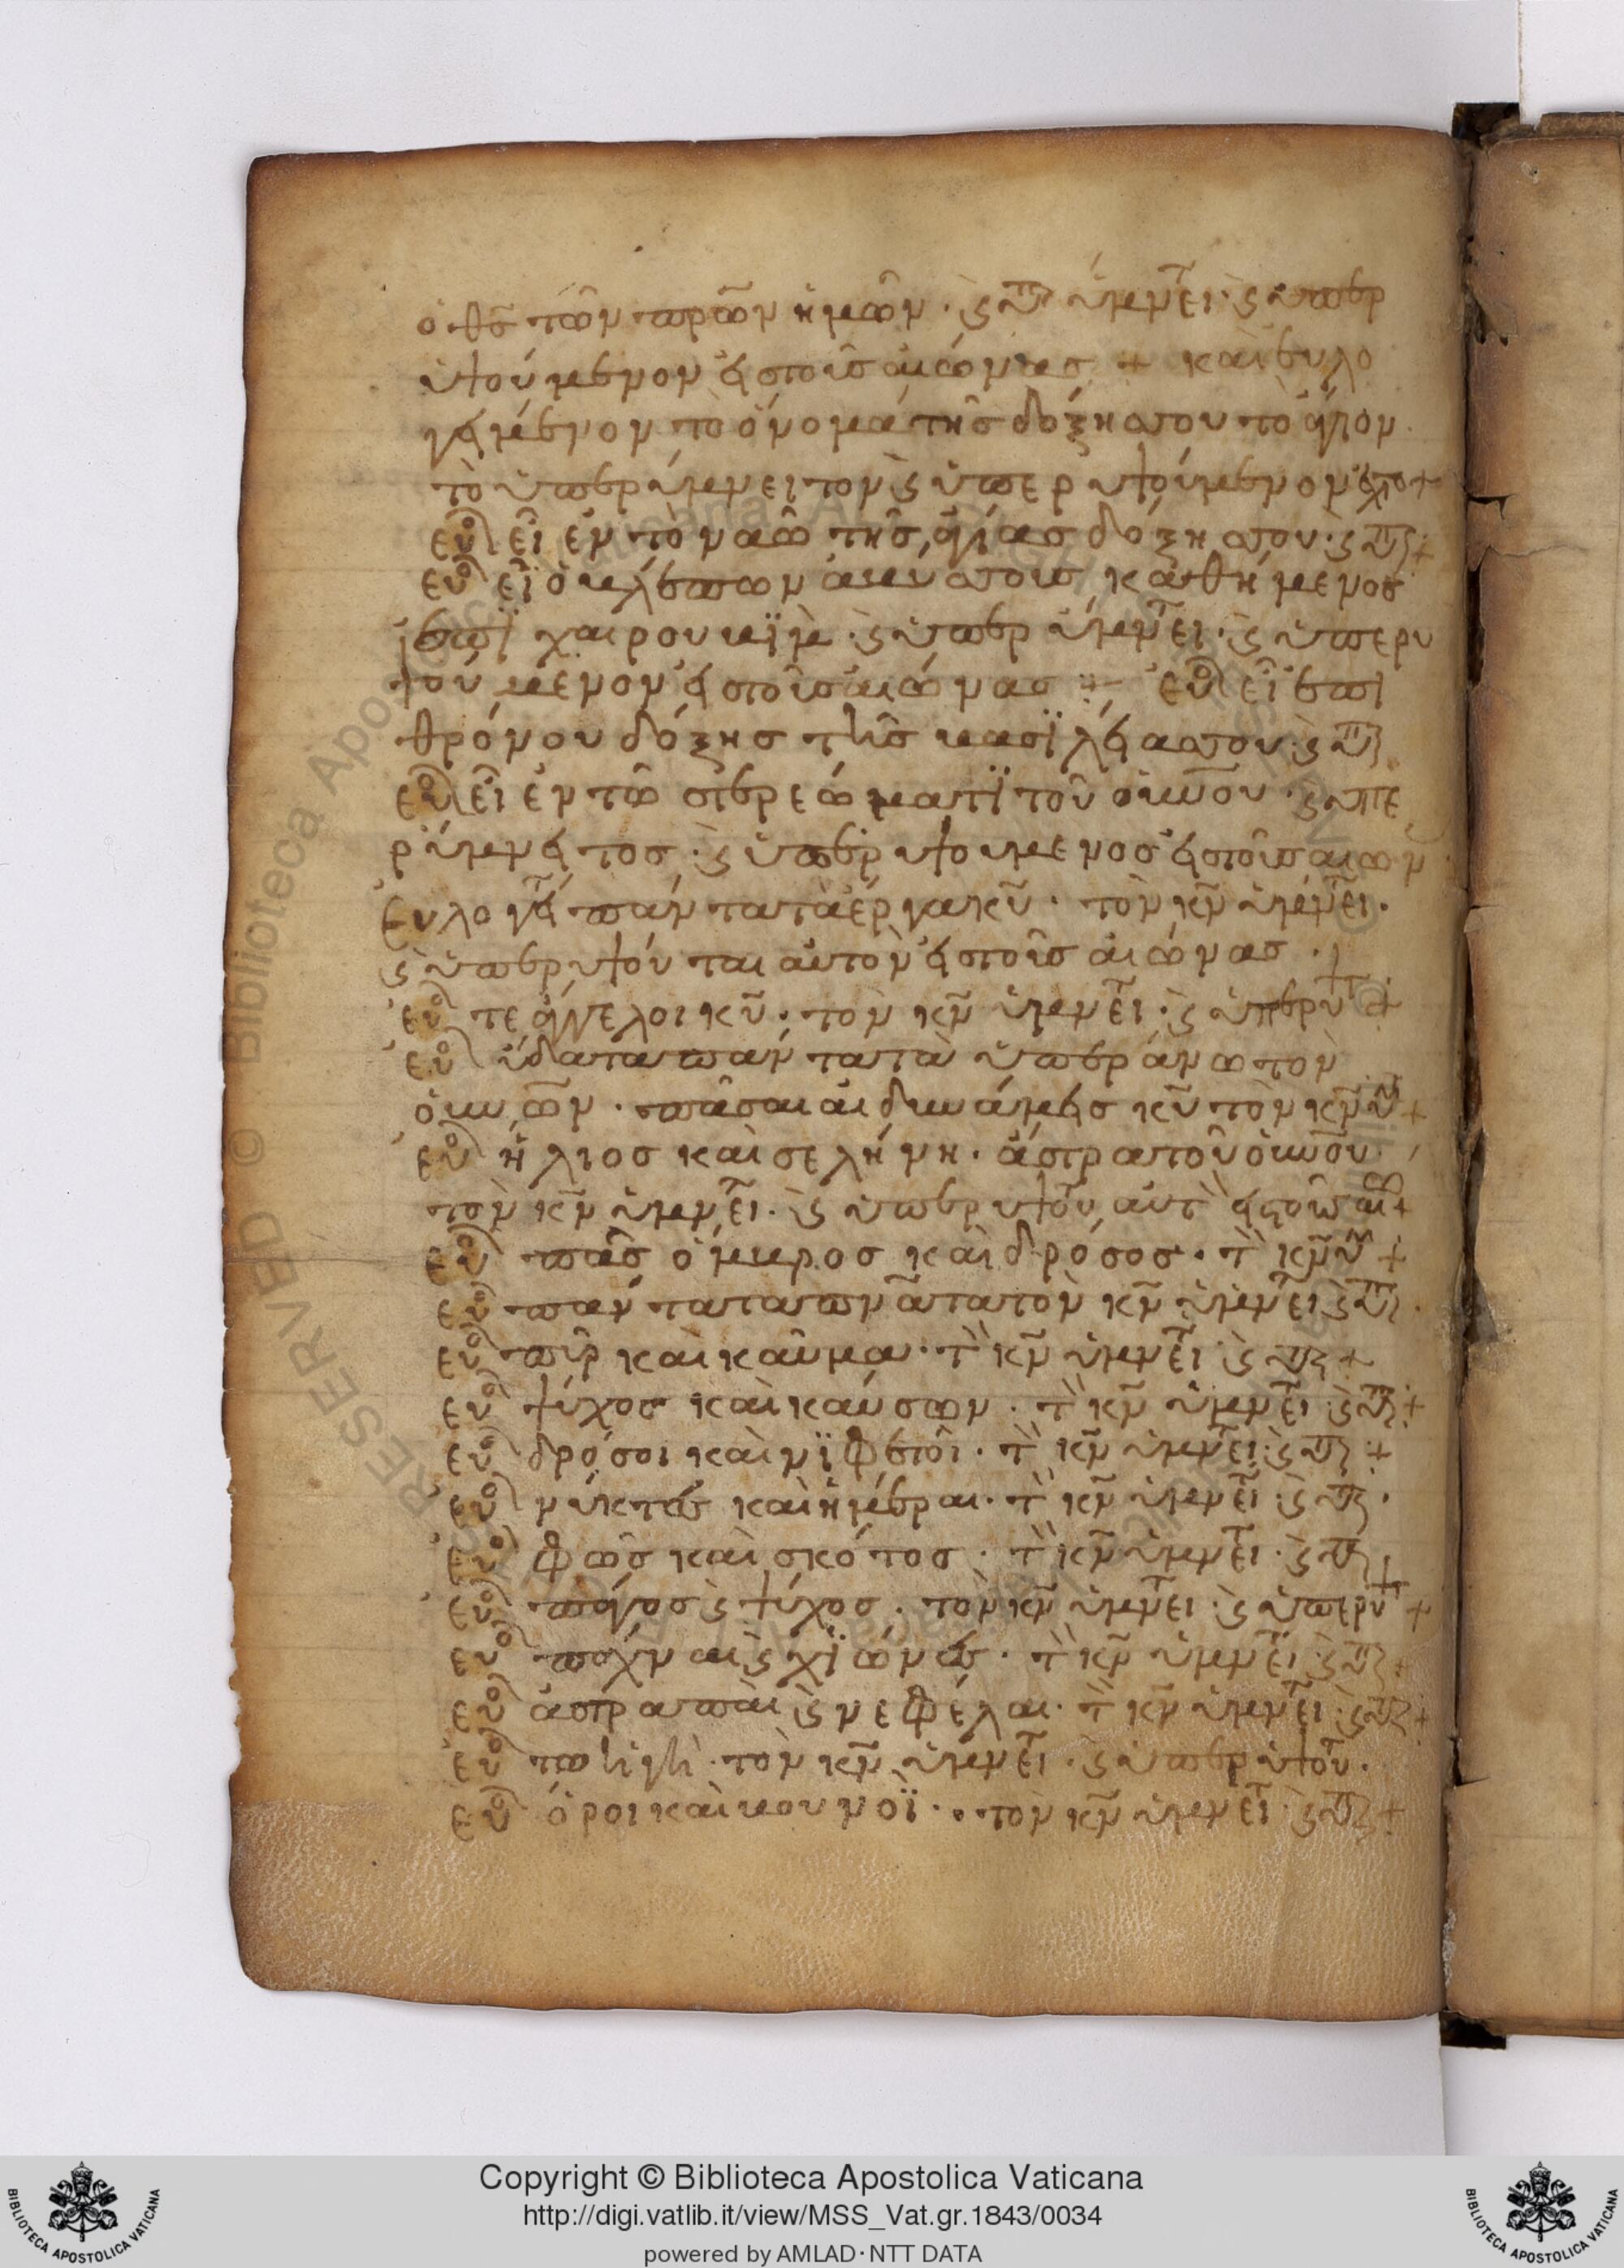 ὁ θς τῶν πρῶν ἡμῶν · ϛ ὑπ ὑμνεῖ · ϛ ὑπερ
υψούμενον εἰς τοῦς αἰώνας + καὶ ευλο
γειμένον τὸ όνομά τῆς δόξης σου τὸ άγιον
τὸ ὑπερύμνειτον ϛ ὑπερυψούμενον
ευλ εἶ ἐν τὸ ναῶ τῆς αγίας δόξης σου · ϛ ὑπ +
ευλ εἶ ὁ βλέπων άβυσους καθήμενος
ἐπῒ χαιρουβῒμ · ϛ ὑπερύμνεῖ · ϛ ὑπερυ
ψούμενον εἰς τοῦς αἰώνας + ευλ εἶ ἐπι
θρόνου δόξης τῆς βασϊλείας σου · ϛ ὑπ
ευλ εἶ ἐν τῶ στερεώματϊ τοῦ οὐνου · ϛ ὑπε
ρύμνειτος · ϛ ὑπερυψουμενος εἰς τοῦς αιων
Ευλογεῖ πάντα τὰ έργα κυ · τὸν κν ὑμνεῖ ·
ϛ ὑπερυψούται αὐτὸν εἰς τοῦς αἰώνας · +
ευλ τε άγγελοι κυ · τὸν κν ὑμνεῖ · ϛ ὑπερυ +
ευλ ὕδατα πάντα τὰ ὑπεράνω τον
οὐνων · πᾶσαι αἱ δυνάμεις κυ τὸν κν ὑ +
ευλ ἥλιος καὶ σελήνη · άστρα τοῦ οὐνου
τὸν κν ὑμνεῖ · ϛ ὑπερυψοῦ αὐτ εἰς τοῦς αι +
ευλ πᾶς όμβρος καὶ δρόσος · τ κν ὑ +
ευλ πάντα τα πνατα τὸν κν ὑμνεῖ ϛ ὑπ ·
ευλ πῦρ καὶ καῦμα · τ κν ὑμνεῖ ϛ ὑπ +
ευλ ψύχος καὶ καύσων · τ κν ὑμνεῖ ϛ ὑπ +
ευλ δρόσοι καὶ νϊφετοὶ · τ κν ὑμνεῖ ϛ ὑπ +
ευλ νύκτες καὶ ἡμέραι · τ κν ὑμνεῖ ϛ ὑπ ·
ευλ φῶς καὶ σκότος · τ κν ὑμνεῖ · ϛ ὑπ
ευλ πάγος ϛ ψύχος · τὸν κν ὑμνεῖ · ϛ ὑπερυ +
ευλ πάχναι ϛ χϊώνες · τ κν ὑμνεῖ ϛ ὑπ +
ευλ άστραπαὶ ϛ νεφέλαι · τ κν ὑμνεῖ ϛ ὑπ +
ευλ τῒ γὶ · τὸν κν ὑμνεῖ · ϛ ὑπερυψοῦ ·
ευλ όροι καὶ βουνοῒ · τὸν κν ὑμνεῖ ϛ ὑπ +
Copyright © Biblioteca Apostolica Vaticana
http://digi.vatlib.it/view/MSS_Vat.gr.1843/0034
powered by AMLAD · NTT DATA
BIBLIOTECA APOSTOLICA VATICANA
BIBLIOTECA APOSTOLICA VATICANA